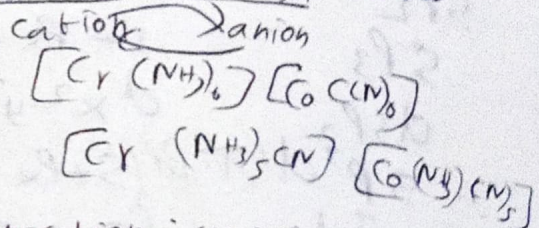 cation anion
[Cr (NH3)6] [Co (CN)6]
[Cr (NH3)5 CN] [Co (NH3) (CN)5]